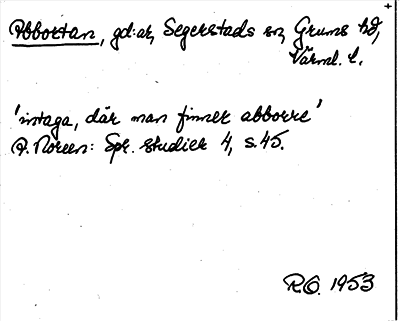 Abbortan, gd:ar, Segerstads sn, Grums hd,
Värml. l.
'intaga, där man finner abborre'
A. Noreen: Spr. studier 4, s. 45.
R.O. 1953